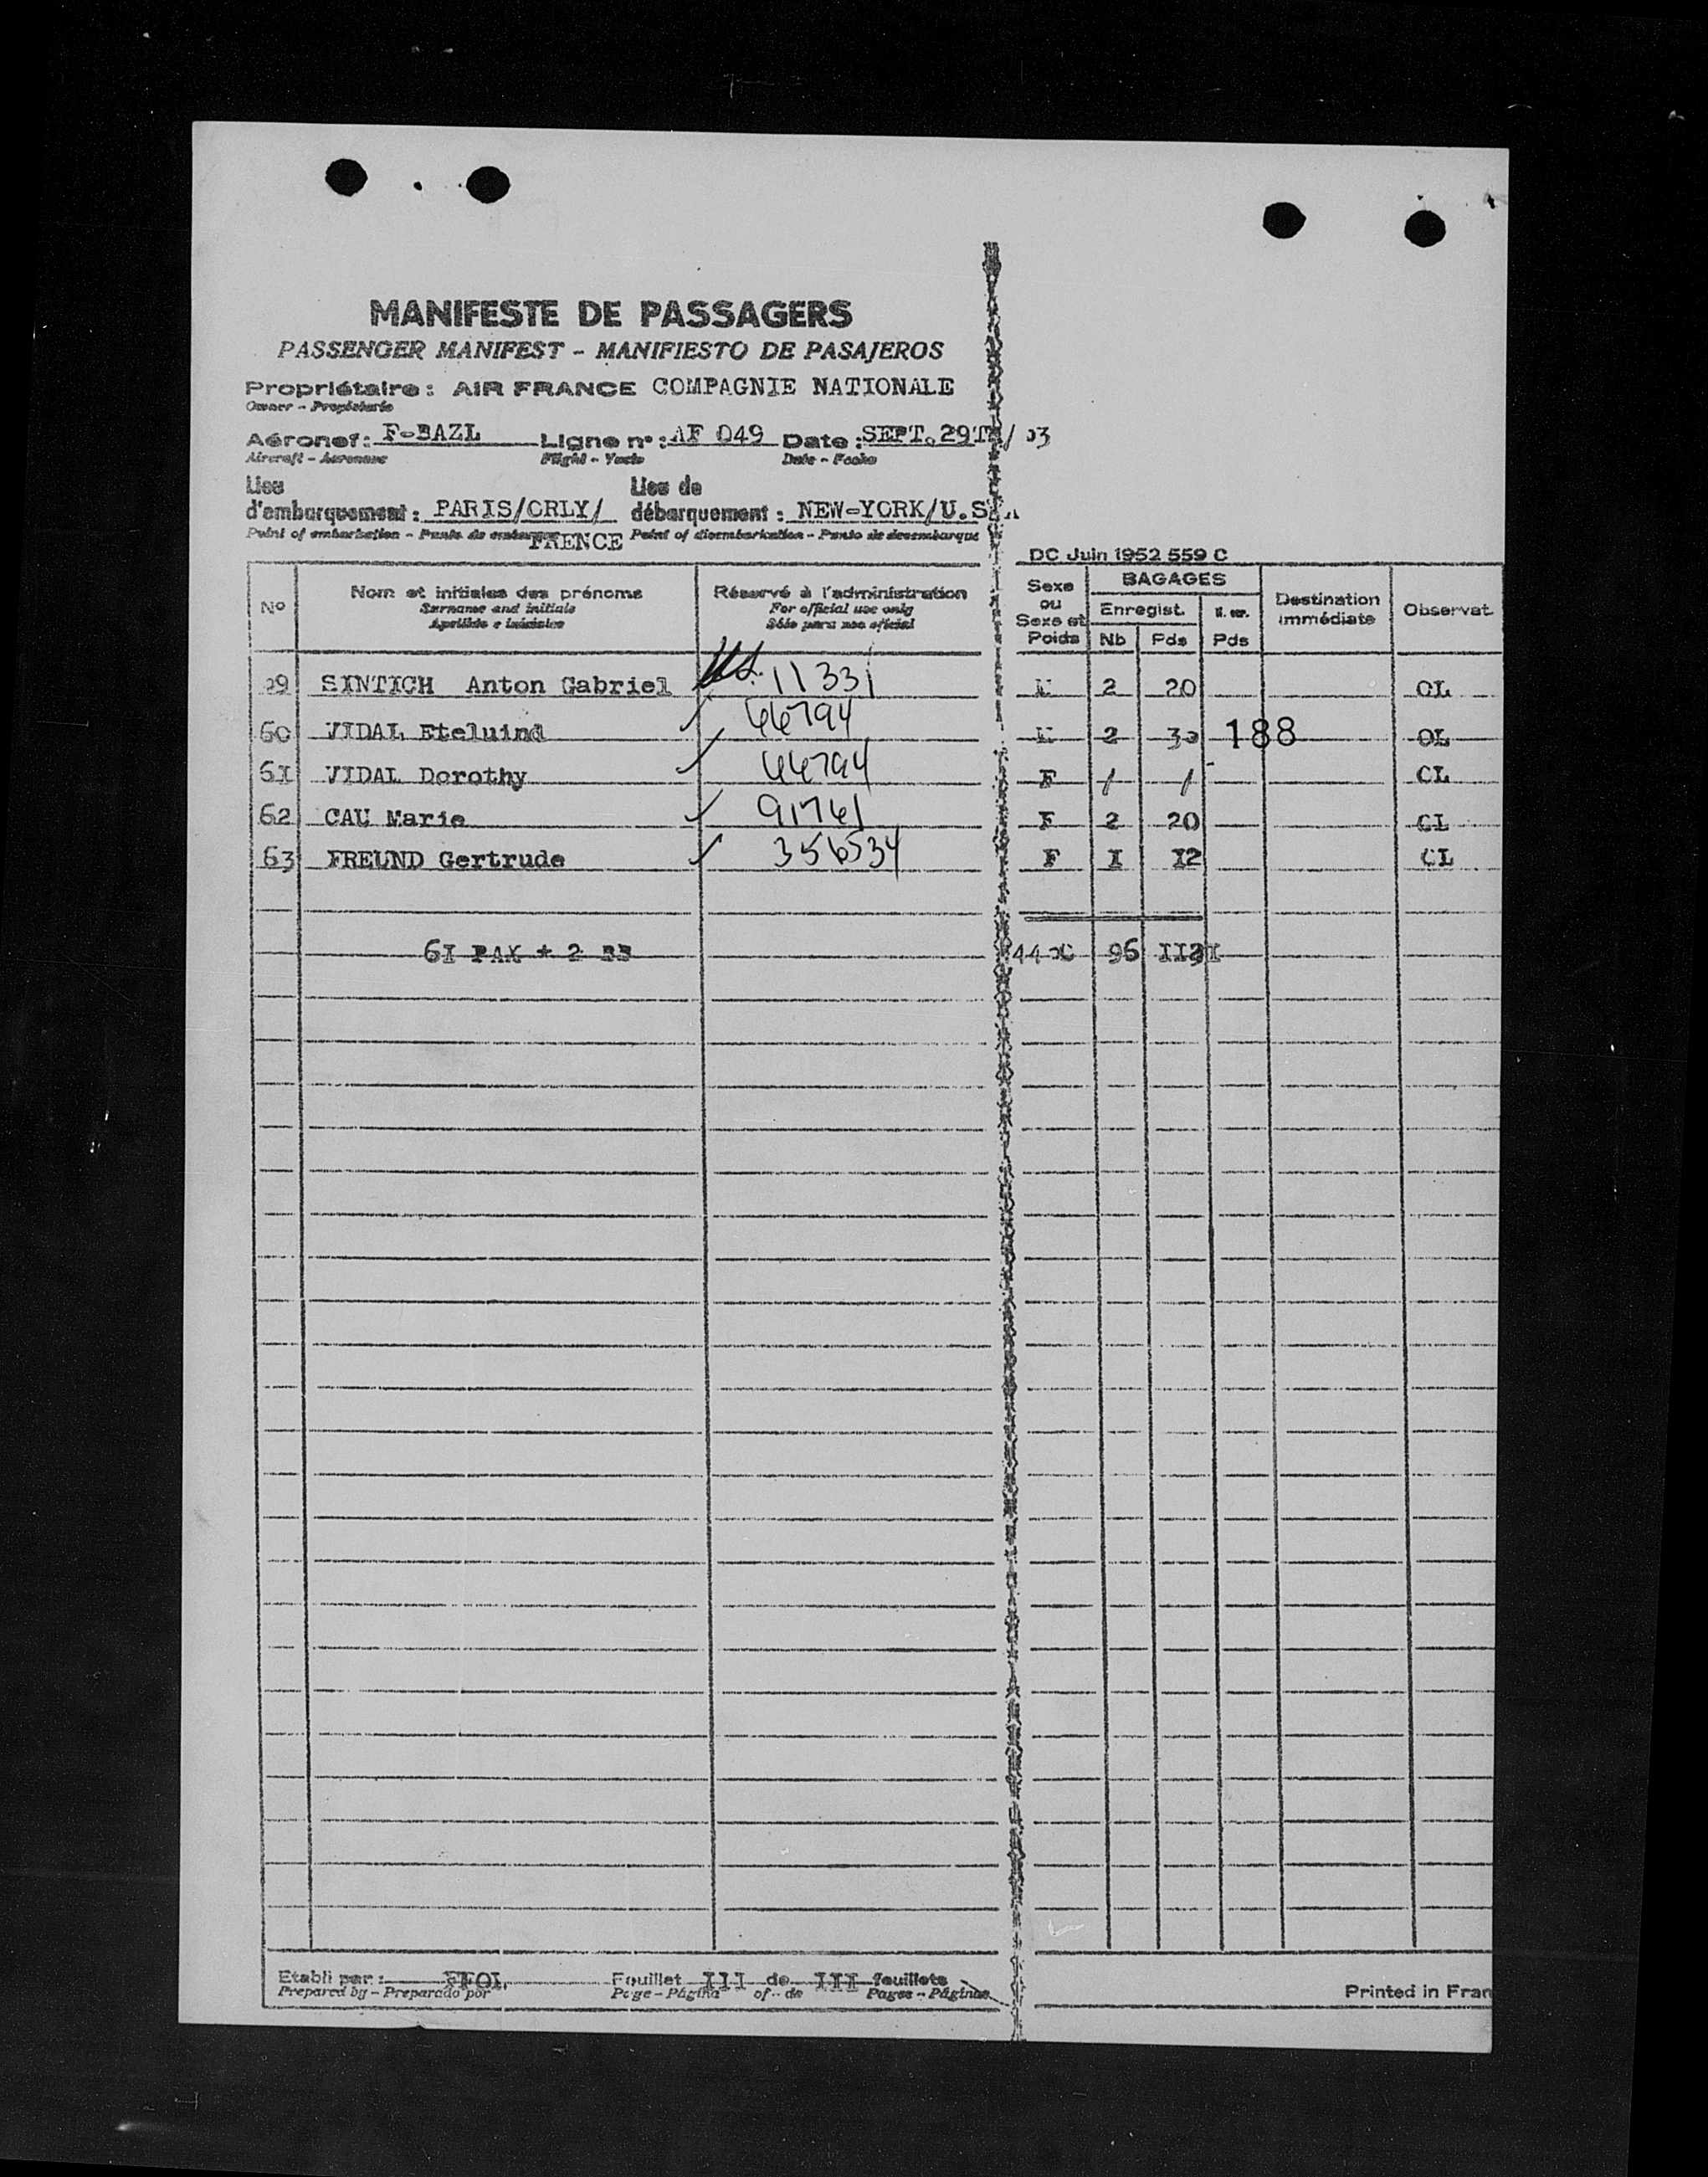 MANIFESTE DE PASSAGERS
PASSENGER MANIFEST - MANIFIESTO DE PASAJEROS
Propriétaire : AIR FRANCE COMPAGNIE NATIONALE
Owner - Propietario
Aéronef : F-BAZL Ligne n° : AF 049 Date : SEPT. 29TH/ 53
Aircraft - Aeronave Flight - Vuelo Date - Fecha
Lieu Lieu de
d'embarquement : PARIS/ORLY/ débarquement : NEW-YORK/U.S.A
Point of embarkation - Punto de embarque FRENCE Point of disembarkation - Punto de desembarque
DC Juin 1952 559 C
N° Nom et initiales des prénoms Réservé à l'administration Sexe ou Sexe et Poids BAGAGES Destination immédiate Observat.
Surname and initials For official use only Enregist.
Apellido e iniciales Sólo para uso oficial Nb Pds Pds
59 SINTICH Anton Gabriel 11331 M 2 20 OL
60 VIDAL Eteluind 66794 M 2 30 188 OL
61 VIDAL Dorothy 66794 F / / OL
62 CAU Marie 91761 F 2 20 OL
63 FREUND Gertrude 356534 F I I2 OL
6I PAX + 2 BB 44 96
Etabli par : Fouillet III de III feuillets
Prepared by - Preparado por Page - Página of - de Pages - Páginas
Printed in Fran